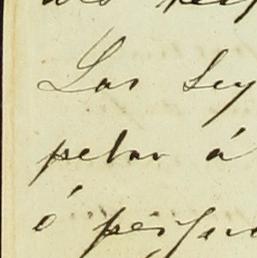 Las Ley
petar á
ó persu